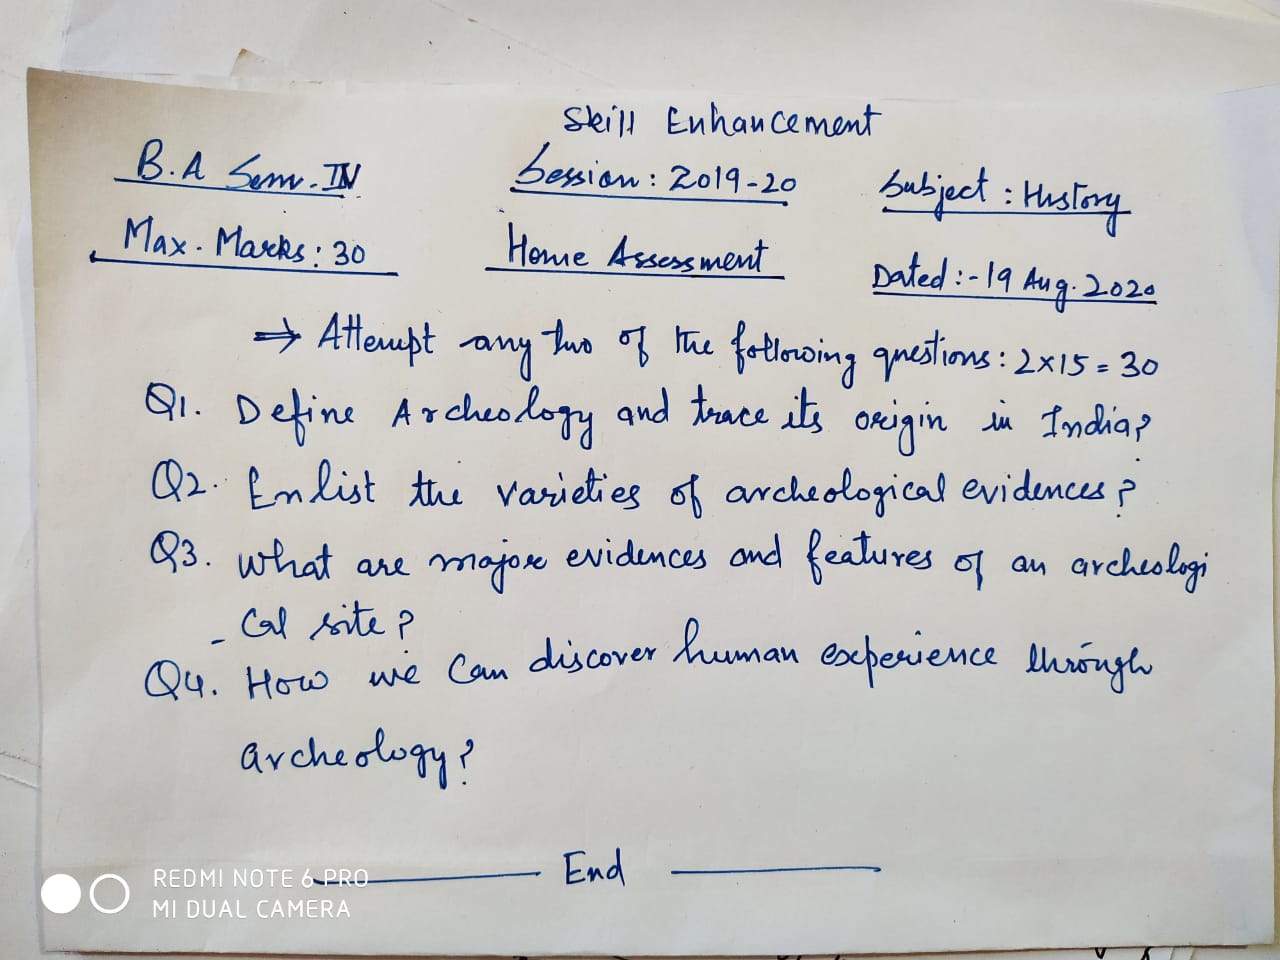 Skill Enhancement
B.A Sem. IV Session: 2019-20 Subject: History
Max. Marks: 30 Home Assessment Dated:- 19 Aug. 2020
⇒ Attempt any two of the following questions: 2×15=30
Q1. Define Archeology and trace its origin in India?
Q2. Enlist the varieties of archeological evidences?
Q3. What are major evidences and features of an archeologi
- Cal site?
Q4. How we Can discover human experience through
archeology?
End
REDMI NOTE 6 PRO
MI DUAL CAMERA